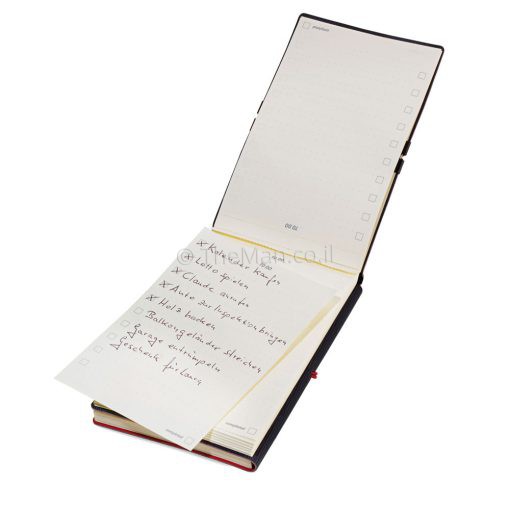 Kalender kaufen
Lotto spielen
© TheMan.co.il
Claude anrufen
Auto zur Inspektion bringen
Holz hacken
Balkongeländer streichen
Garage entrümpeln
Geschenk für Laura